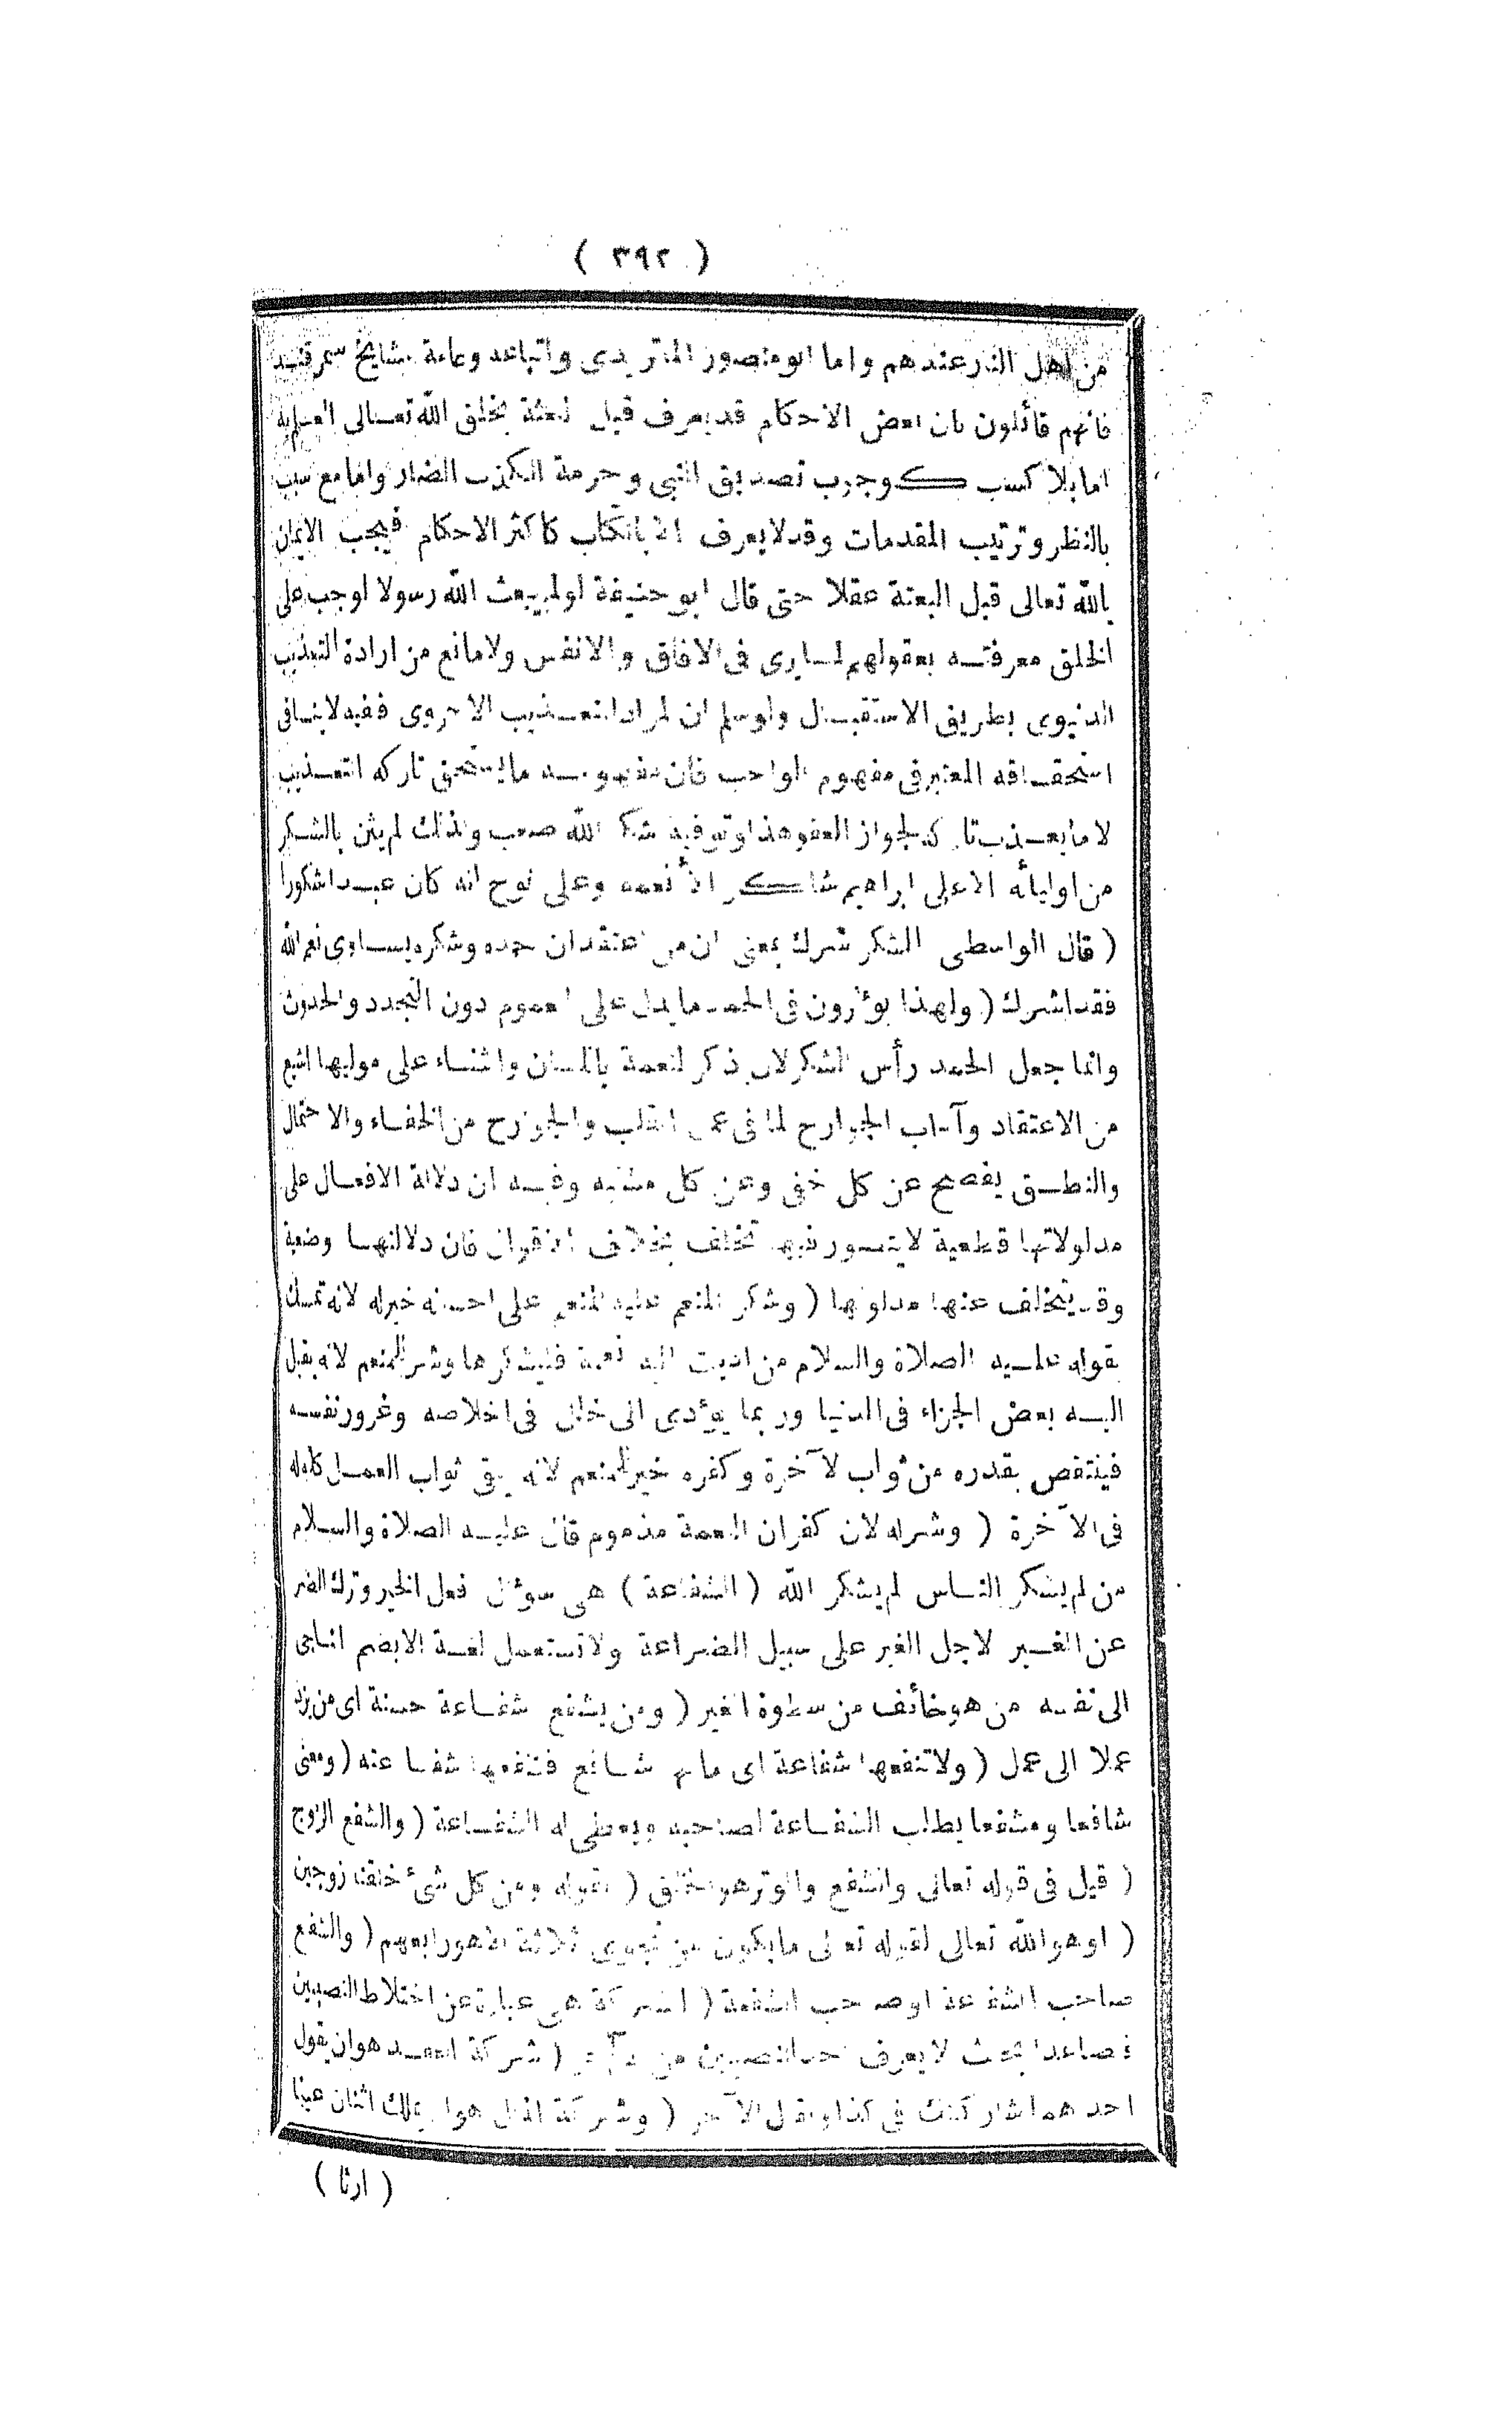 ( ٣٩٢ )
من اهل النار عندهم واما ابو منصور الماتريدى واتباعه وعامة مشايخ سمرقند
فانهم قائلون بان بعض الاحكام قد يعرف قبل البعثة بخلق الله تعالى العلم به
اما بلا كسب كوجوب تصديق النبى وحرمة الكذب الضار واما مع سبب
بالنظر وترتيب المقدمات وقد لا يعرف الا بالكتاب كاكثر الاحكام فيجب الايمان
بالله تعالى قبل البعثة عقلا حتى قال ابو حنيفة لو لم يبعث الله رسولا لوجب على
الخلق معرفته بعقولهم لما يرى فى الافاق والانفس ولا مانع من ارادة التعذيب
الدنيوى بطريق الاستقبال ولو سلم ان المراد التعذيب الاخروى ففيه لا ينافى
استحقاقه المعتبر فى مفهوم الواجب فان مفهومه ما يستحق تاركه التعذيب
لا ما يعذب تاركه لجواز العفو هذا وتوفية شكر الله صعب ولذلك لم يثن بالشكر
من اوليائه الا على ابراهيم شاكرا لأنعمه وعلى نوح انه كان عبدا شكورا
( قال الواسطى الشكر شرك بمعنى ان من اعتقد ان حمده وشكره يساوى نعم الله
فقد اشرك ( ولهذا يؤثرون فى الحمد ما يدل على العموم دون التجدد والحدوث
وانما جعل الحمد رأس الشكر لان ذكر النعمة باللسان والثناء على موليها اشيع
من الاعتقاد وآداب الجوارح لما فى عمل القلب والجوارح من الخفاء والاحتمال
والنطق يفصح عن كل خفى وعن كل مشتبه وفيه ان دلالة الافعال على
مدلولاتها قطعية لا يتصور فيها تخلف بخلاف الاقوال فان دلالتها وضعية
وقد يتخلف عنها مدلولها ( وشكر المنعم عليه المنعم على احسانه خير له لانه تمسك
بقوله عليه الصلاة والسلام من اديت اليه نعمة فليشكرها وشر للمنعم لانه يقبل
اليه بعض الجزاء فى الدنيا وربما يؤدى الى خلل فى اخلاصه وغرور نفسه
فينتقص بقدره من ثواب الآخرة وكفره خير للمنعم لانه يبقى ثواب العمل كله له
فى الآخرة ( وشر له لان كفران النعمة مذموم قال عليه الصلاة والسلام
من لم يشكر الناس لم يشكر الله ( الشفاعة ) هى سؤال فعل الخير وترك الضر
عن الغير لاجل الغير على سبيل الضراعة ولا تستعمل لغة الا بضم الناجى
الى نفسه من هو خائف من سطوة الغير ( ومن يشفع شفاعة حسنة اى من يزد
عملا الى عمل ( ولا تنفعها شفاعة اى ما لها شافع فتنفعها شفاعته ( ومعنى
شافعا ومشفعا يطلب الشفاعة لصاحبه ويعطى له الشفاعة ( والشفع الزوج
( قيل فى قوله تعالى والشفع والوتر هو الخلق ( لقوله ومن كل شئ خلقنا زوجين
( او هو الله تعالى لقوله تعالى ما يكون من نجوى ثلاثة الا هو رابعهم ( والشفع
صاحب الشفاعة او صاحب الشفعة ( الشركة هى عبارة عن اختلاط النصيبين
فصاعدا بحيث لا يعرف احد النصيبين من الآخر ( شركة العقد هو ان يقول
احدهما شاركتك فى كذا ويقبل الآخر ( وشركة الملك هو ان يملك اثنان عينا
( ارثا )